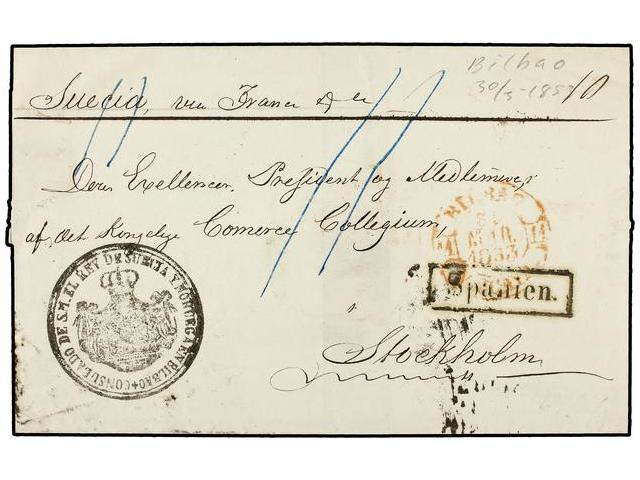 Bilbao
30/5-1853
Suecia, via France
10
Deres Excellencer, President og Medlemmer
af det Kongelige Comerce Collegium,
BILBAO
1853
Spanien.
CONSULADO DE S.M. EL REY DE SUECIA Y NORUEGA EN BILBAO
Stockholm